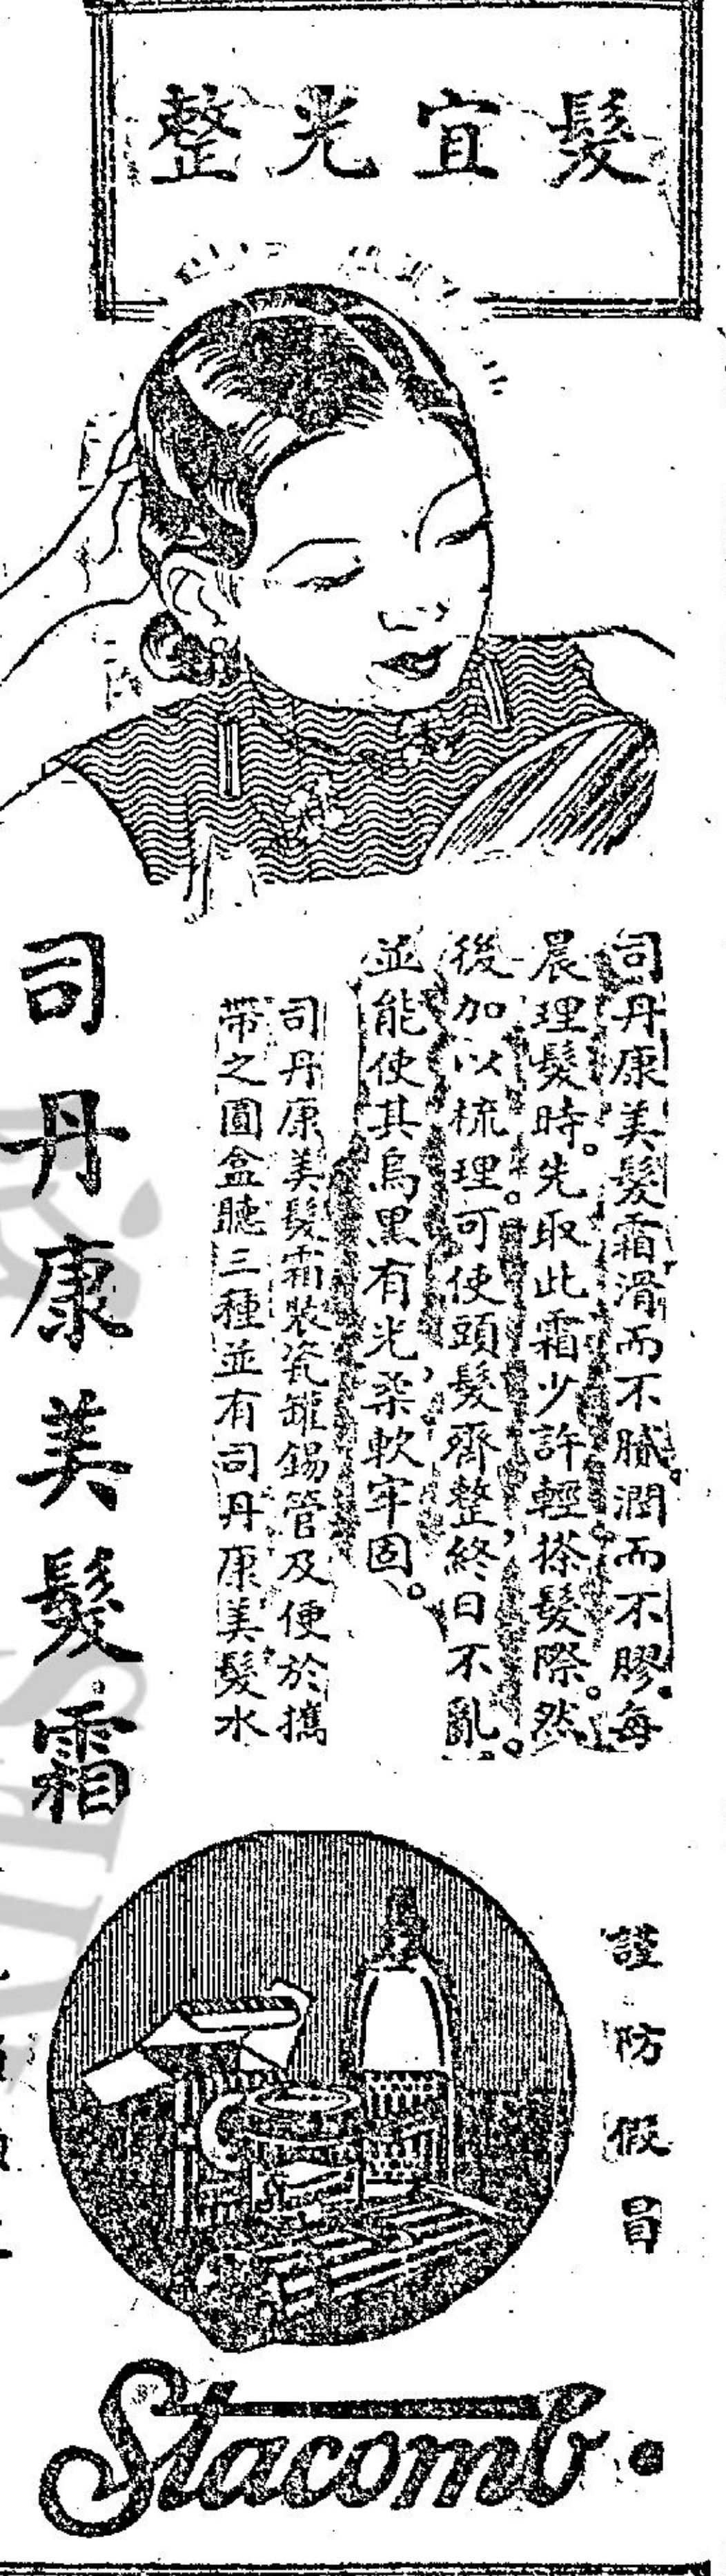 髮宜光整
司丹康美髮霜滑而不膩。潤而不膠。每
晨理髮時。先取此霜少許輕搽髮際。然
後加以梳理。可使頭髮齊整，終日不亂。
並能使其烏黑有光，柔軟牢固。
司丹康美髮霜裝瓷罐錫管及便於攜
帶之圓盒聽三種並有司丹康美髮水
司丹康美髮霜
謹防假冒
Stacomb